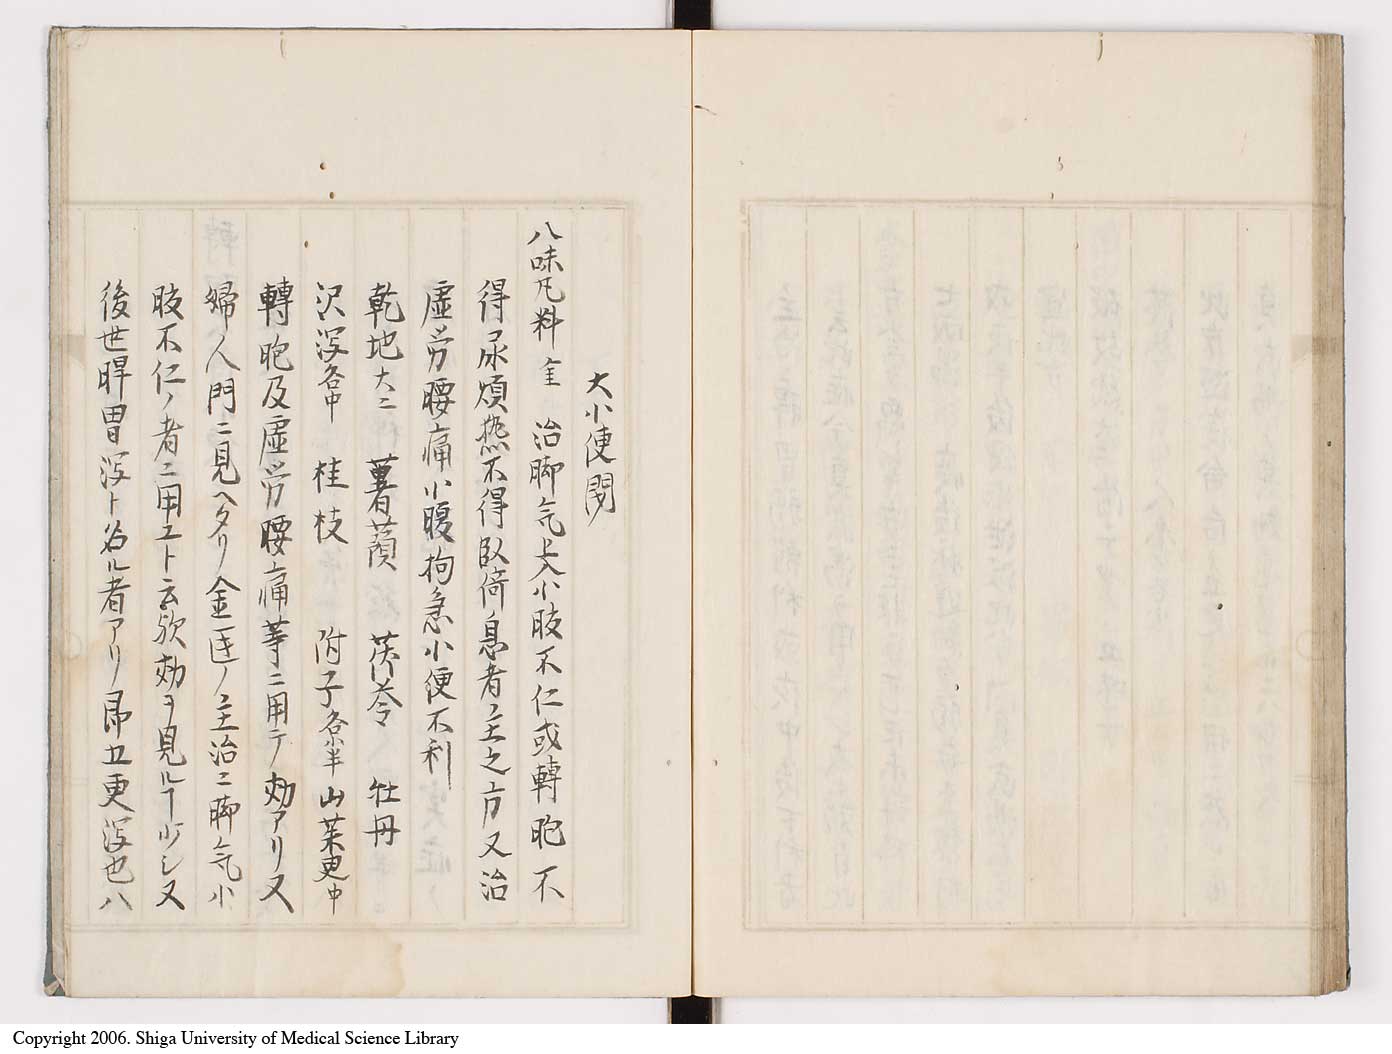 大小便閉
八味凡料 金 治脚气上入小肢不仁或轉胞不
得尿煩熱不得臥倚息者主之方又治
虚労腰痛小腹拘急小便不利
乾地大ニ 薯蕷 茯苓 牡丹
沢瀉各中 桂枝 附子各半 山茱更中
轉胞及虚労腰痛等ニ用テノ効アリ又
婦ノ人門ニ見ヘタリ金匱ノ主治ニ脚气小
肢不仁ノ者ニ用ユト云欤効ヲ見ルヿ少シ又
後世脾胃瀉ト名ル者アリ即五更瀉也八
Copyright 2006. Shiga University of Medical Science Library